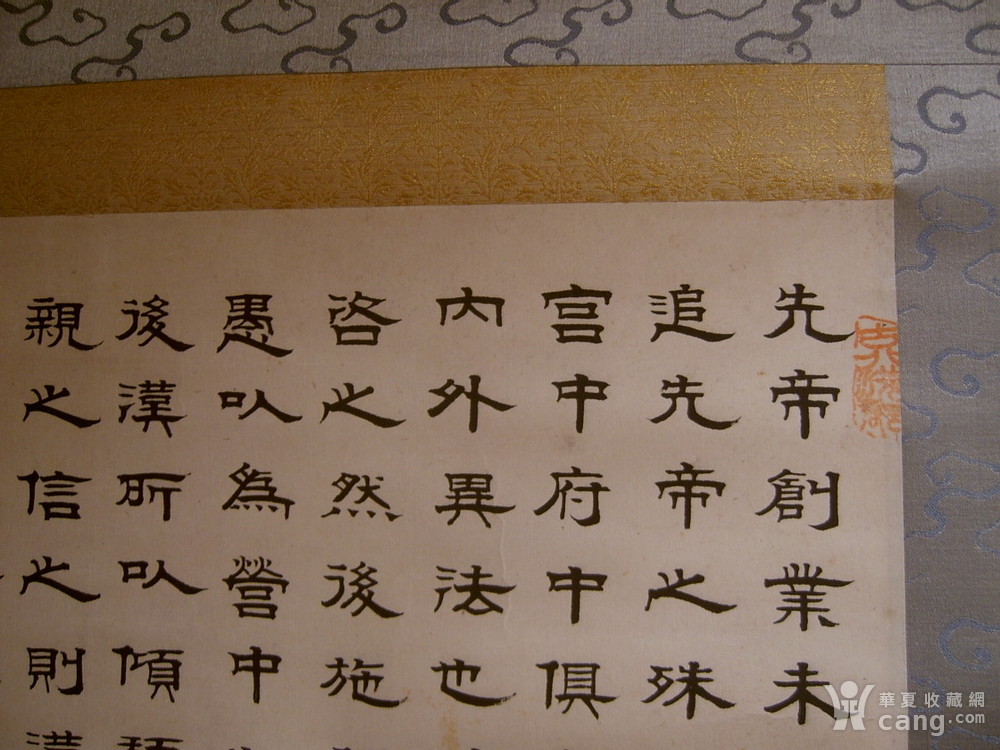 先帝創業未
追先帝之殊
宫中府中俱
内外異法也
咨之然後施
愚以為營中
後漢所以傾
親之信之則漢
華夏收藏網
cang.com